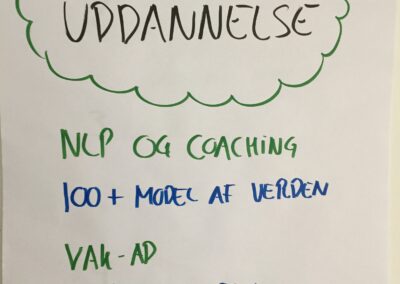 UDDANNELSE
NLP OG COACHING
100+ MODEL AF VERDEN
VAK-AD